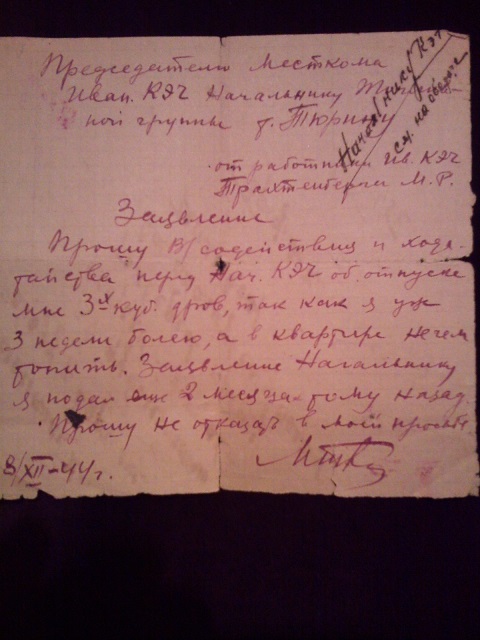 Председателю Месткома
Иван. КЭЧ Начальнику
ной группы т. Тюрину
от работника Ив. КЭЧ
Трахтенберга М. Р.
Начальнику КЭЧ
см. на обороте
Заявление
Прошу В/содействия и хода-
тайства перед Нач. КЭЧ об отпуске
мне 3х куб. дров, так как я уже
3 недели болею, а в квартире нечем
топить. Заявление Начальнику
я подал еще 2 месяца тому назад.
Прошу не отказать в моей просьбе
8/XII-44 г.